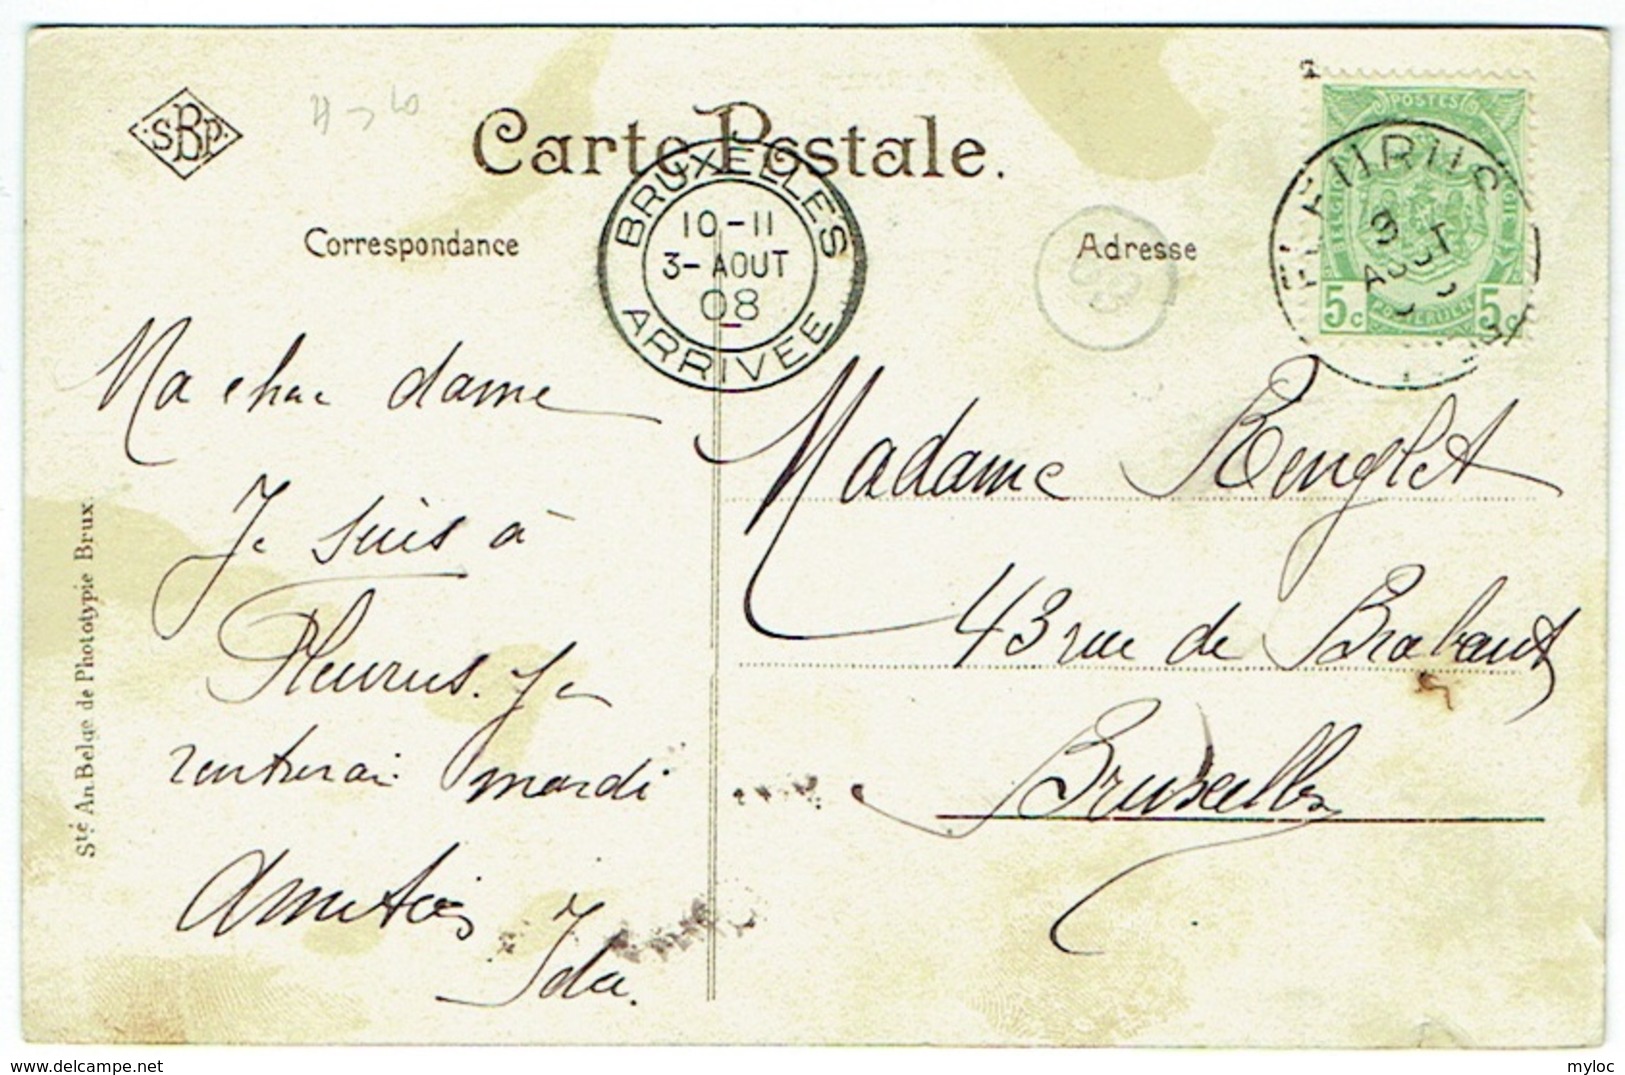 SBP
Carte Postale.
BRUXELLES
10-11
3-AOUT
08
ARRIVEE
Correspondance
Adresse
POSTES
FLEURUS
AOUT
5c 5c
Ma cher dame
Je suis à
Fleurus. Je
rentrerai mardi
Amitiés
Ida.
Madame Renglet
43 rue de Brabant
Bruxelles
Sté An Belge de Phototypie Brux.
delcampe.net
myloc